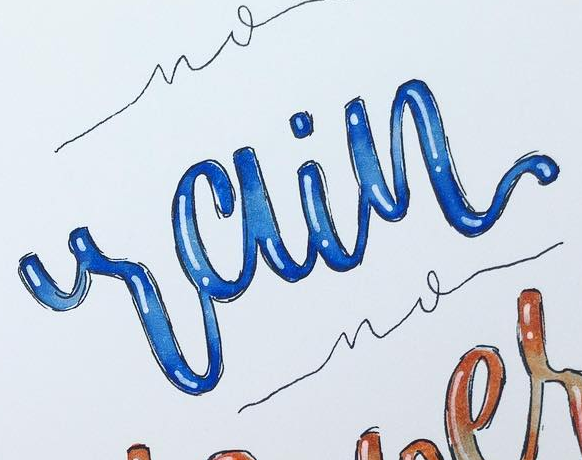 no
rain
no